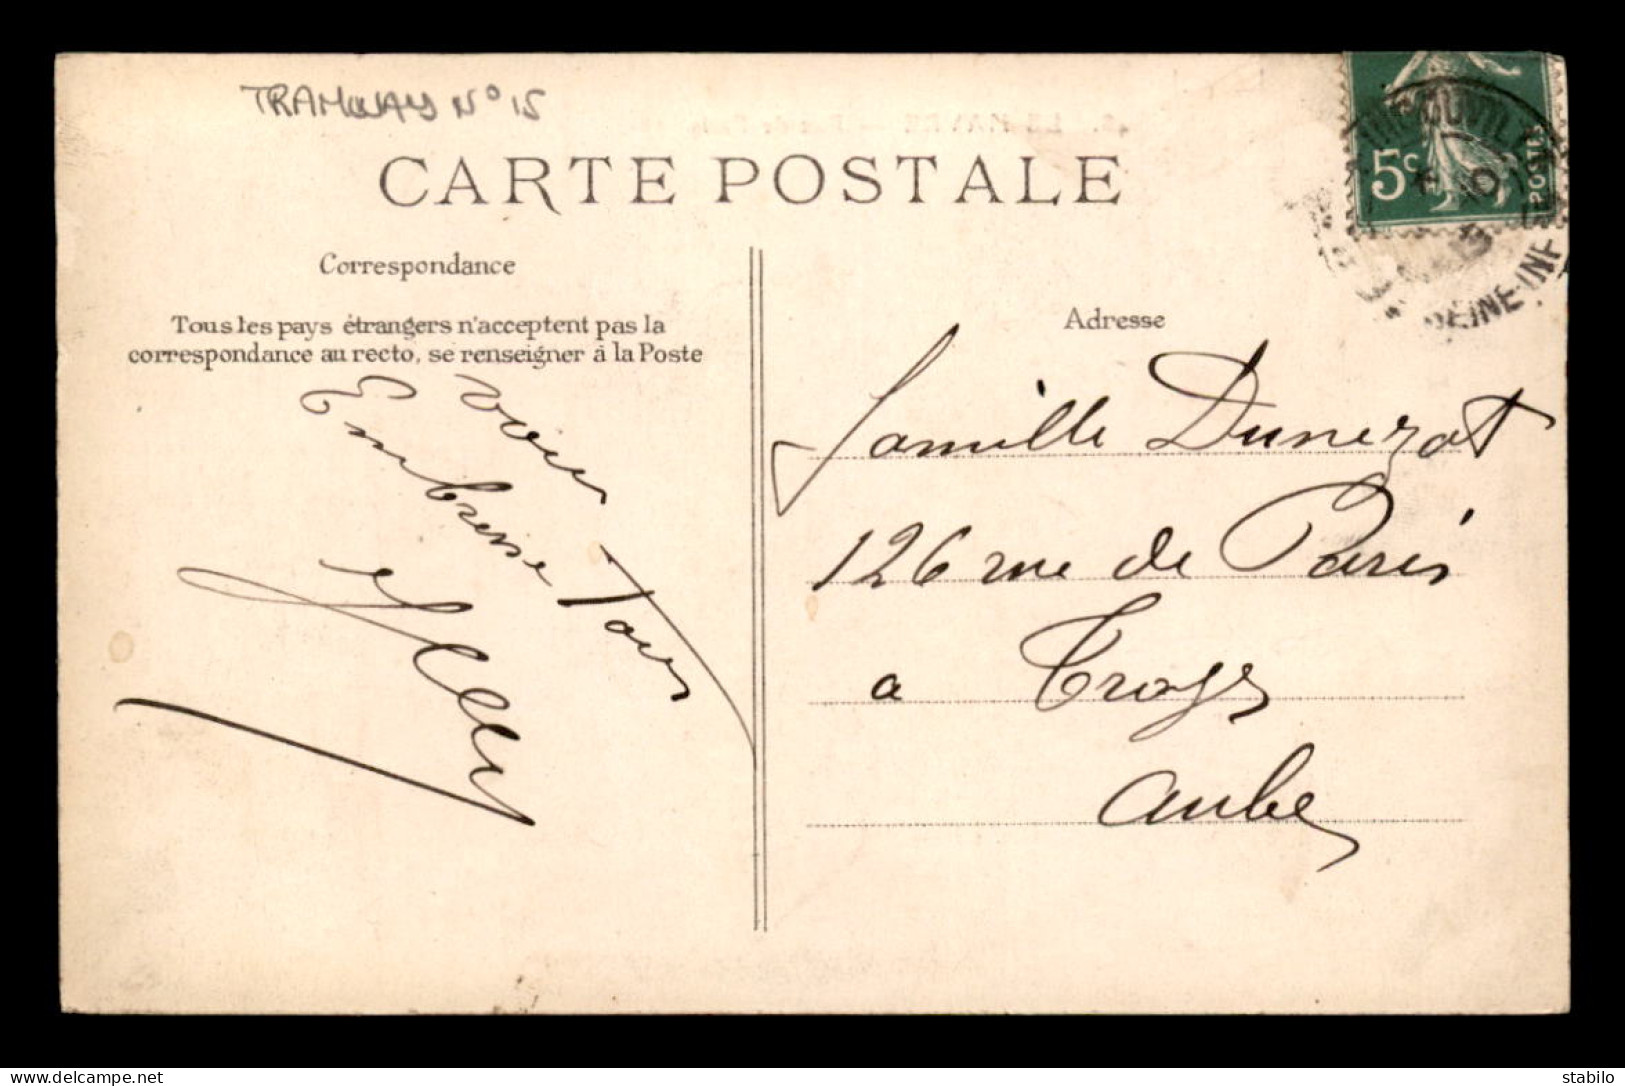 TRAMWAY N° 15
CARTE POSTALE
5c
POSTES
SEINE-INF
Correspondance
Tous les pays étrangers n'acceptent pas la
correspondance au recto, se renseigner à la Poste
Adresse
vous
Embrasse Tous
famille Dunerat
126 rue de Paris
a Troyes
Aube
delcampe.net
stabilo